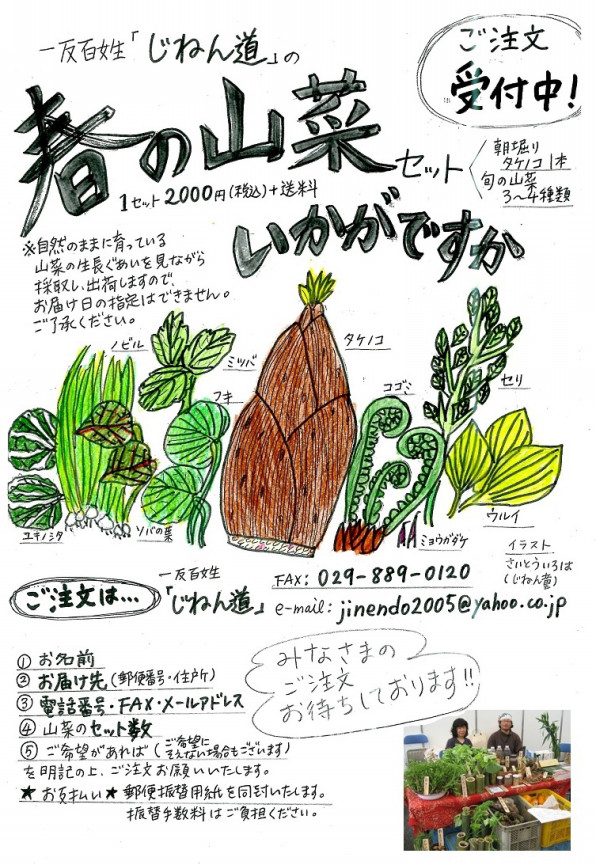 一反百姓「じねん道」の
ご注文
受付中!
春の山菜
セット
朝堀り
タケノコ1本
旬の山菜
3〜4種類
1セット2,000円(税込)+送料
いかがですか
※自然のままに育っている
山菜の生長ぐあいを見ながら
採取し、出荷しますので、
お届け日の指定はできません。
ご了承ください。
ノビル
ミツバ
タケノコ
フキ
コゴミ
セリ
ユキノシタ
ソバの葉
ミョウガダケ
ウルイ
イラスト
さいとういろは
(じねん堂)
ご注文は…
一反百姓
「じねん道」
FAX: 029-889-0120
e-mail: jinendo2005@yahoo.co.jp
① お名前
② お届け先(郵便番号・住戸斤)
③ 電話番号・FAX・メールアドレス
④ 山菜のセット数
⑤ ご希望があれば(ご希望に
そえない場合もございます)
を明記の上、ご注文お願いいたします。
★お支払い★ 郵便振替用紙を同封いたします。
振替手数料はご負担ください。
みなさまの
ご注文
お待ちしております!!